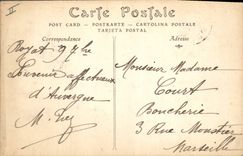 II
Carte Postale
POST CARD - POSTKARTE - CARTOLINA POSTALE
TARJETA POSTAL
Correspondance
Adresse
Royat 9 7bre
Souvenir affectueux
d'Auvergne
Monsieur Madame
Court
Boucherie
3 Rue Moustier
Marseille